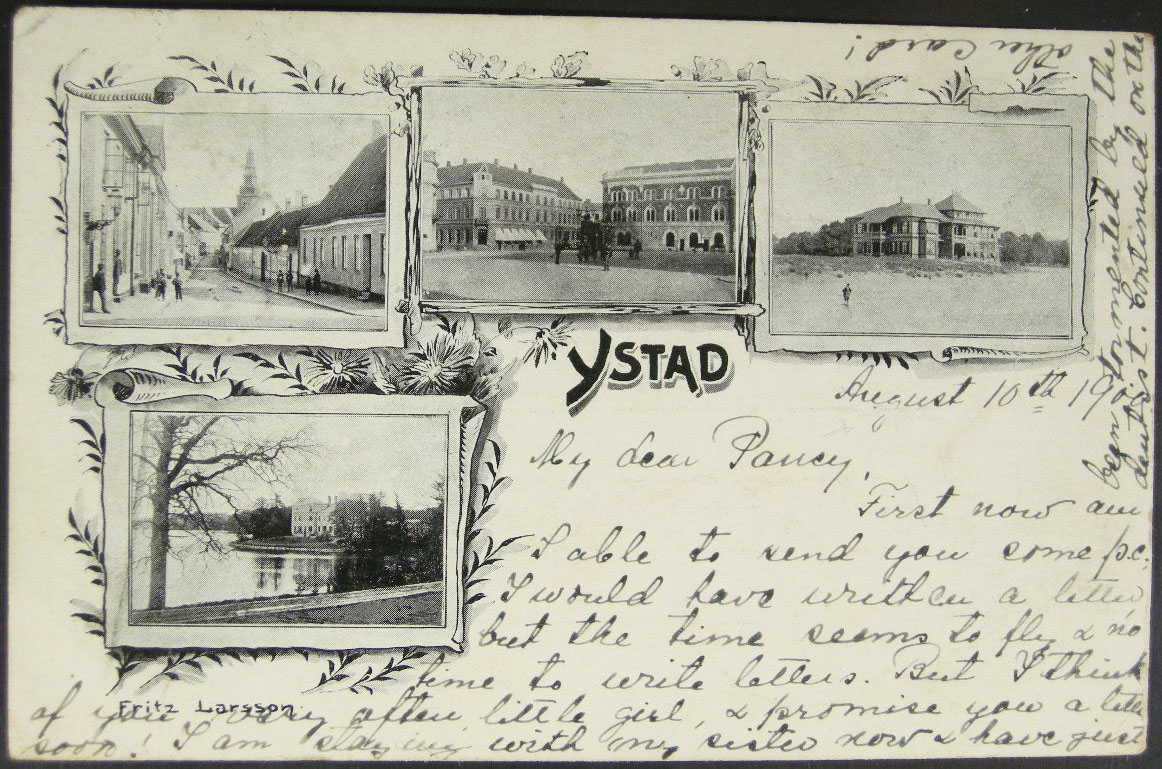 YSTAD
August 10th 190
My dear Pancy,
First now am
I able to send you some p.c.
I would have written a letter
but the time seems to fly & no
time to write letters. But I think
of you very often little girl, & promise you a letter
soon! I am staying with my sister now & have just
been tormented by the
dentist. Continued on the
other Card!
Fritz Larsson